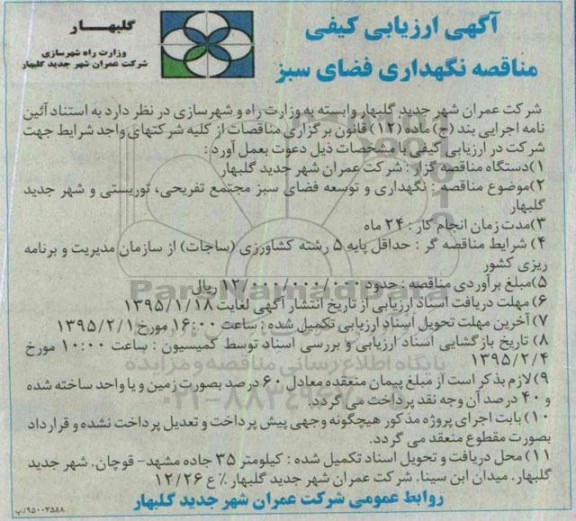 آگهی ارزیابی کیفی
مناقصه نگهداری فضای سبز
گلبهار
وزارت راه شهرسازی
شرکت عمران شهر جدید گلبهار
شرکت عمران شهر جدید گلبهار وابسته به وزارت راه و شهرسازی در نظر دارد به استناد آئین
نامه اجرایی بند (ج) ماده (۱۲) قانون برگزاری مناقصات از کلیه شرکتهای واجد شرایط جهت
شرکت در ارزیابی کیفی با مشخصات ذیل دعوت بعمل آورد :
۱)دستگاه مناقصه گزار : شرکت عمران شهر جدید گلبهار
۲)موضوع مناقصه : نگهداری و توسعه فضای سبز مجتمع تفریحی، توریستی و شهر جدید
گلبهار
۳)مدت زمان انجام کار : ۲۴ ماه
۴) شرایط مناقصه گر : حداقل پایه ۵ رشته کشاورزی (ساجات) از سازمان مدیریت و برنامه
ریزی کشور
۵)مبلغ برآوردی مناقصه : حدود ریال
۶) مهلت دریافت اسناد ارزیابی از تاریخ انتشار آگهی لغایت ۱۳۹۵/۱/۱۸
۷) آخرین مهلت تحویل اسناد ارزیابی تکمیل شده : ساعت ۱۶:۰۰ مورخ ۱۳۹۵/۲/۱
۸) تاریخ بازگشایی اسناد ارزیابی و بررسی اسناد توسط کمیسیون : ساعت ۱۰:۰۰ مورخ
۱۳۹۵/۲/۴
۹) لازم بذکر است از مبلغ پیمان منعقده معادل ۶۰ درصد بصورت زمین و یا واحد ساخته شده
و ۴۰ درصد آن وجه نقد پرداخت می گردد.
۱۰) بابت اجرای پروژه مذکور هیچگونه وجهی پیش پرداخت و تعدیل پرداخت نشده و قرارداد
بصورت مقطوع منعقد می گردد.
۱۱) محل دریافت و تحویل اسناد تکمیل شده : کیلومتر ۳۵ جاده مشهد- قوچان. شهر جدید
گلبهار. میدان ابن سینا. شرکت عمران شهر جدید گلبهار ٪ ع ۱۲/۲۶
روابط عمومی شرکت عمران شهر جدید گلبهار
۹۵۰۰۲۵۸۸/پ
ParsNamadData
پایگاه اطلاع رسانی مناقصه و مزایده